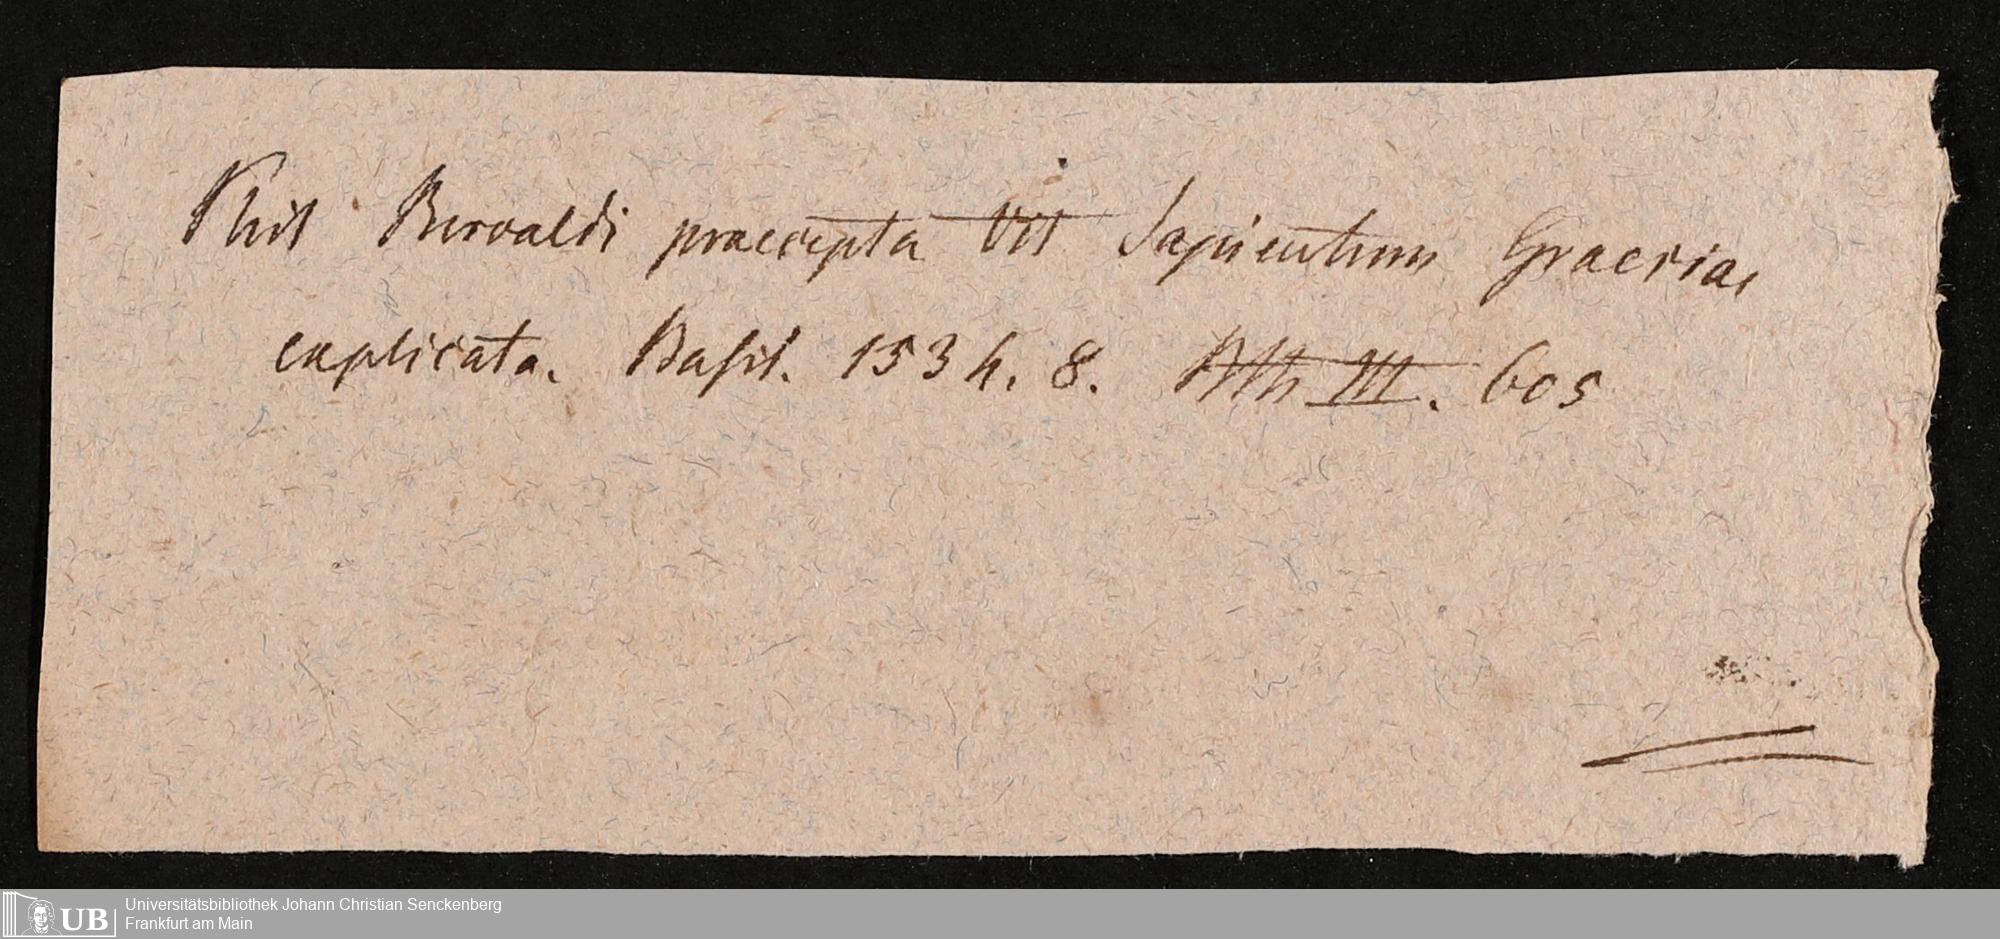 Phil Beroaldi praecepta VII Sapientum Graeciae
explicata. Basil. 1534. 8. Bth III. 605
UB
Universitätsbibliothek Johann Christian Senckenberg
Frankfurt am Main